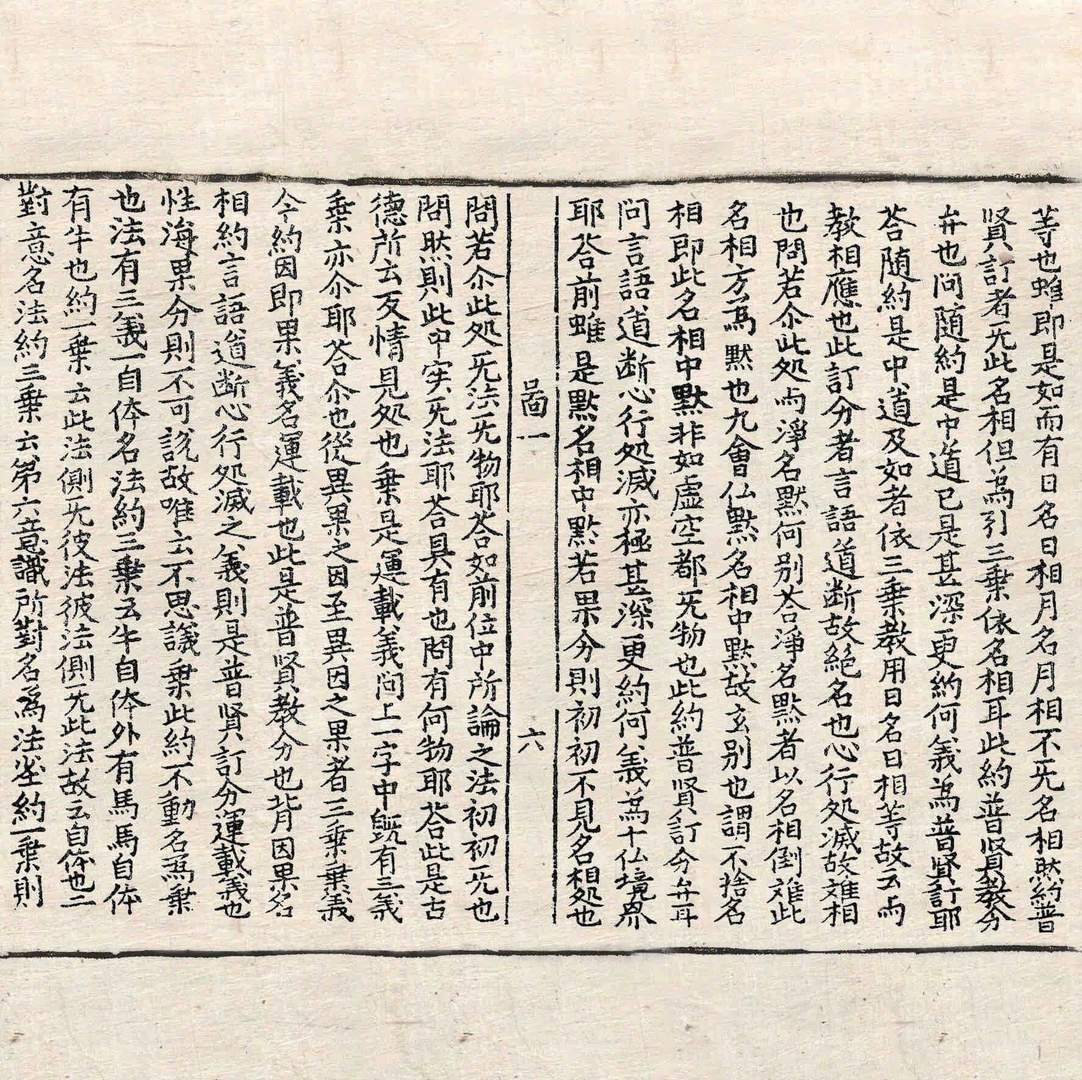 等也雖即是如而有日名日相月名月相不旡名相然約普
賢訂者旡此名相但為引三乗依名相耳此約普賢教分
弁也問随約是中道已是甚深更約何義為普賢訂耶
荅随約是中道及如者依三乗教用日名日相等故云与
教相應也此訂分者言語道断故絶名也心行処滅故離相
也問若尒此処与淨名黙何別荅淨名黙者以名相倒雖此
名相方為黙也九會仏黙名相中黙故玄別也謂不捨名
相即此名相中黙非如虚空都旡物也此約普賢訂分弁耳
問言語道断心行処滅亦極甚深更約何義為十仏境界
耶荅前雖是黙名相中黙若果分則初初不見名相処也
啚一 六
問若尒此処旡法旡物耶荅如前位中所論之法初初旡也
問然則此中实旡法耶荅具有也問有何物耶荅此是古
德所云反情見処也乗是運載義问上一字中旣有三義
乗亦尒耶荅尒也後異果之因至異因之果者三乗乗義
今約因即果義名運載也此是普賢教分也背因果名
相約言語道断心行処滅之義則是普賢訂分運載義也
性海果分則不可說故唯云不思議乗此約不動名為乗
也法有三義一自体名法約三乗云牛自体外有馬馬自体
有牛也約一乗云此法側旡彼法彼法側旡此法故云自体也二
對意名法約三乗云第六意識所對名為法坐約一乗則